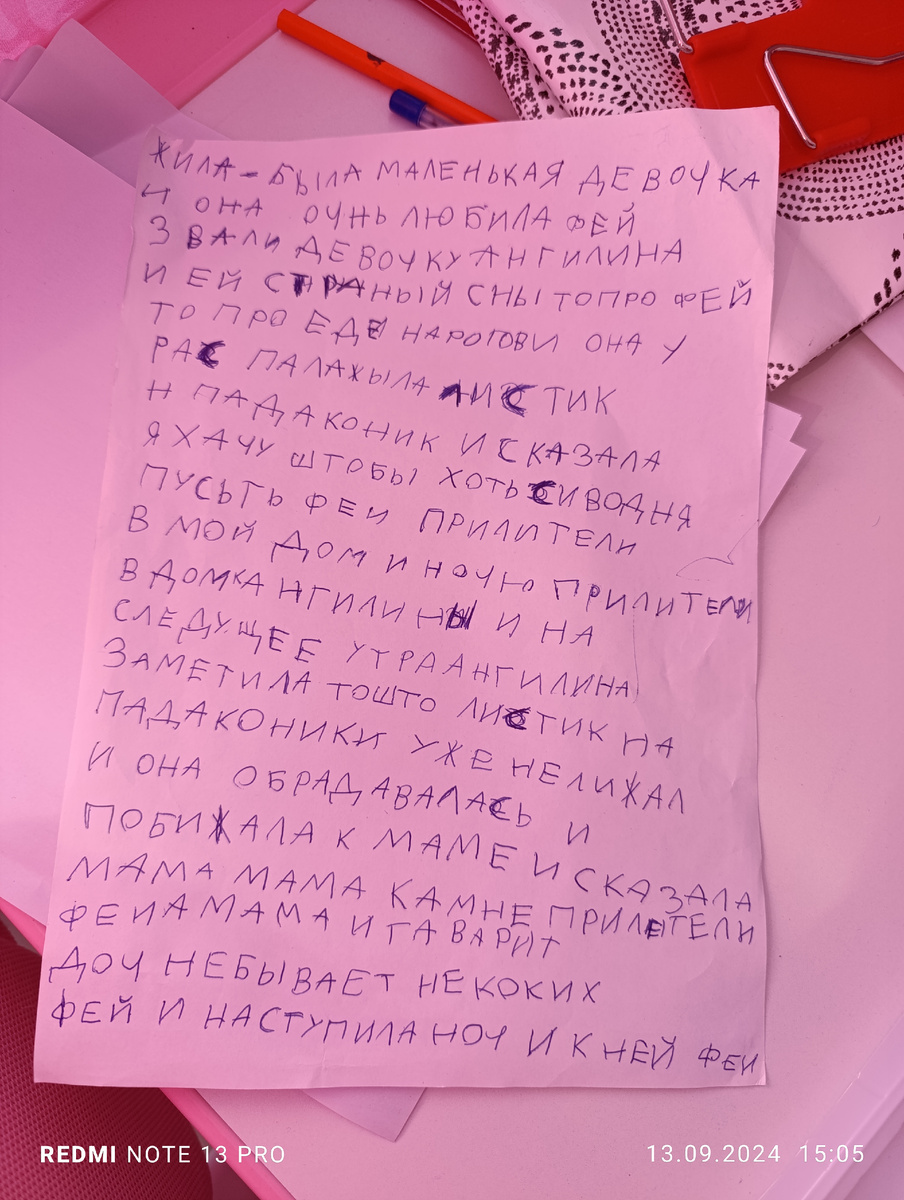 ЖИЛА-БЫЛА МАЛЕНЬКАЯ ДЕВОЧКА
И ОНА ОЧНЬ ЛЮБИЛА ФЕЙ
ЗВАЛИ ДЕВОЧКУ АНГИЛИНА
И ЕЙ СТРАНЫЙ СНЫ ТОПРО ФЕЙ
ТО ПРО ЕДЕ НАРОГОВИ ОНА У
РАС ПАЛАЖЫЛА ЛИСТИК
Н ПАДАКОНИК И СКАЗАЛА
Я ХАЧУ ШТОБЫ ХОТЬ СИВОДНЯ
ПУСЬТЬ ФЕИ ПРИЛИТЕЛИ
В МОЙ ДОМ И НОЧЮ ПРИЛИТЕЛИ
В ДОМКА НГИЛИНЫ И НА
СЛЕДУЩЕЕ УТРААНГИЛИНА
ЗАМЕТИЛА ТОШТО ЛИСТИК НА
ПАДАКОНИКИ УЖЕ НЕЛИЖАЛ
И ОНА ОБРАДАВАЛАСЬ И
ПОБИЖАЛА К МАМЕ И СКАЗАЛА
МАМА МАМА КАМНЕ ПРИЛЕТЕЛИ
ФЕИАМАМА И ГАВАРИТ
ДОЧ НЕБЫВАЕТ НЕКОКИХ
ФЕЙ И НАСТУПИЛА НОЧ И К НЕЙ ФЕИ
REDMI NOTE 13 PRO
13.09.2024 15:05